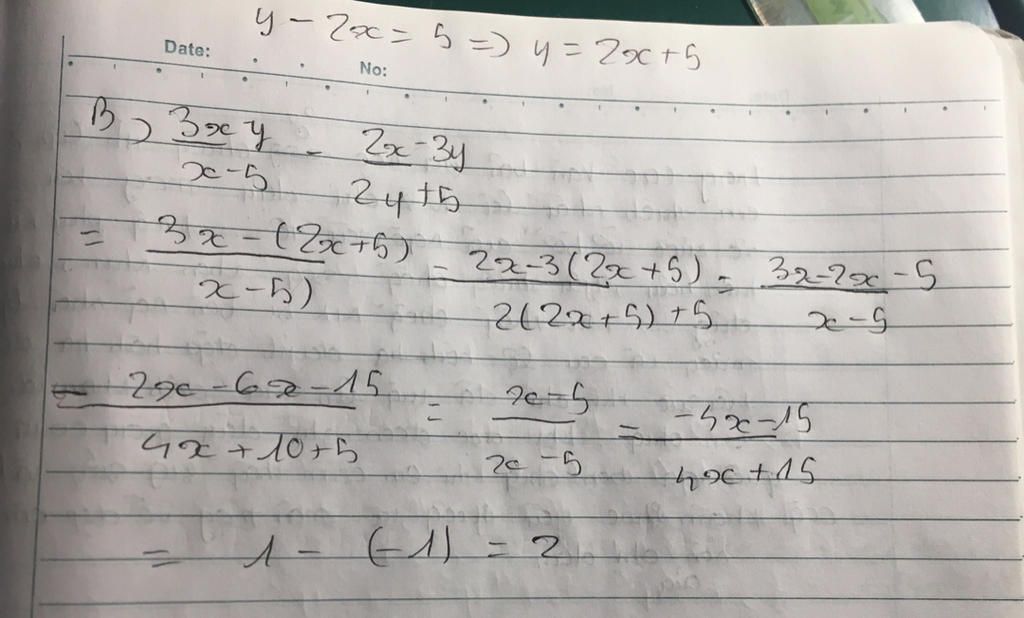 y - 2x = 5 => y = 2x + 5
Date:
No:
B) \frac{3x y}{x-5} - \frac{2x-3y}{2y+5}
= \frac{3x-(2x+5)}{x-5)} - \frac{2x-3(2x+5)}{2(2x+5)+5} = \frac{3x-2x-5}{x-5}
- \frac{2x-6x-15}{4x+10+5} = \frac{x-5}{x-5} = \frac{-4x-15}{4x+15}
= 1 - (-1) = 2